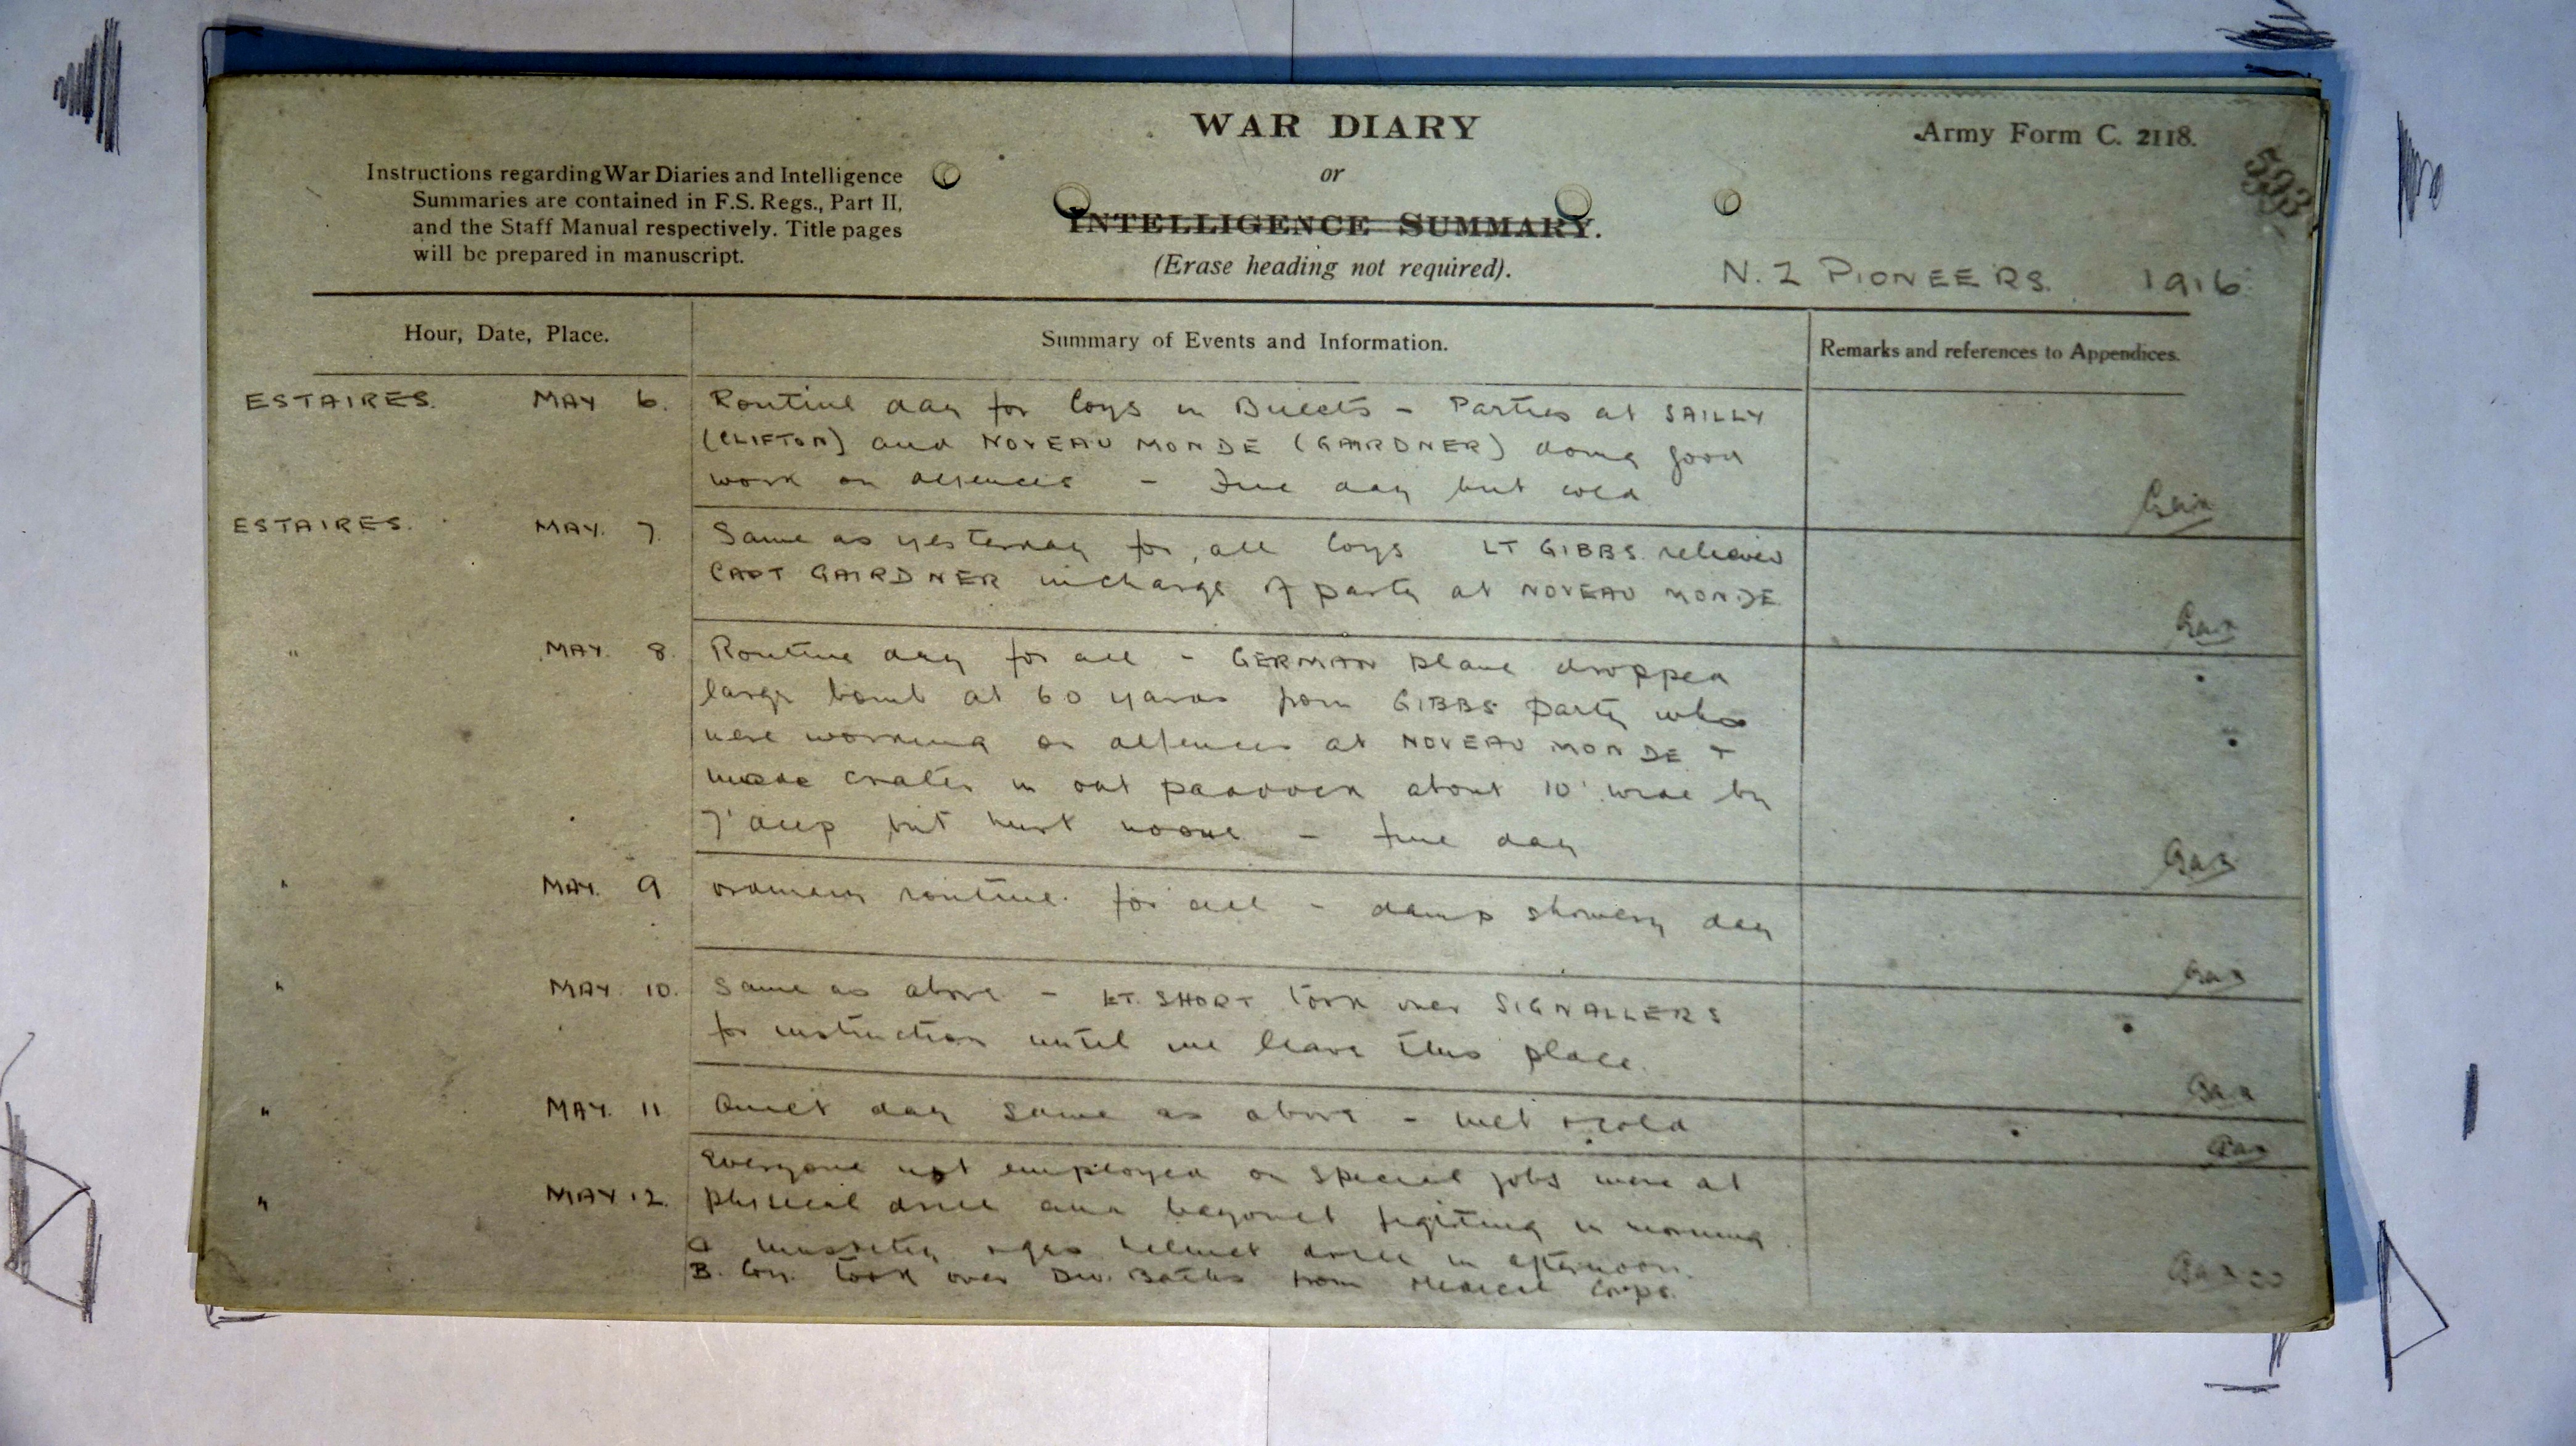 WAR DIARY
or
INTELLIGENCE SUMMARY.
(Erase heading not required).
Army Form C. 2118.
593
Instructions regarding War Diaries and Intelligence
Summaries are contained in F.S. Regs., Part II,
and the Staff Manual respectively. Title pages
will be prepared in manuscript.
N. Z PIONEERS. 1916
Hour, Date, Place.
Summary of Events and Information.
Remarks and references to Appendices.
ESTAIRES. MAY 6. Routine day for Coys in Billets - Parties at SAILLY
(CLIFTON) and NOVEAU MONDE (GAIRDNER) doing good
work on defences - Fine day but cold
ESTAIRES. MAY. 7. Same as yesterday for all Coys LT GIBBS relieved
CAPT GAIRDNER in charge of party at NOVEAU MONDE
" MAY. 8. Routine day for all - GERMAN plane dropped
large bomb at 60 yards from GIBBS party who
were working on defences at NOVEAU MONDE +
made crater in oat paddock about 10' wide by
7' deep but hurt noone - fine day
" MAY. 9 ordinary routine for all - damp showery day
" MAY. 10. Same as above - LT. SHORT took over SIGNALLERS
for instruction until we leave this place.
" MAY. 11 Quiet day same as above - wet & cold
" MAY 12. Everyone not employed on special jobs were at
physical drill and bayonet fighting in morning
& musketry & gas helmet drill in afternoon.
B. Coy. took over Div. Baths from Medical Corps.